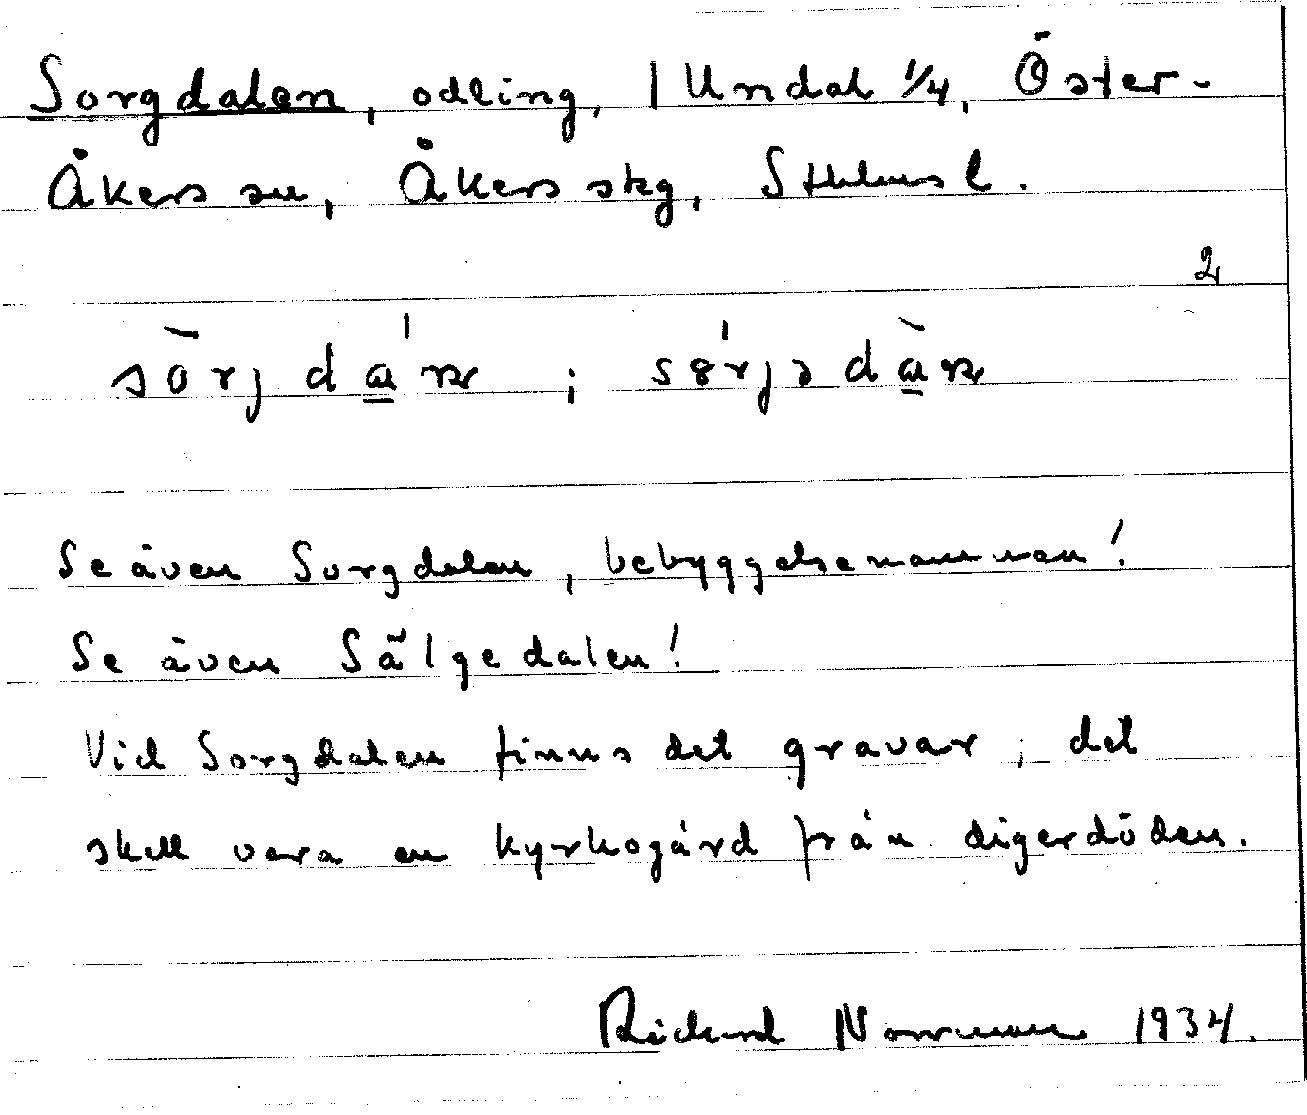 Sorgdalen, odling, 1 Undal 1/4, Öster-
Åkers sn, Åkers skg, Sthlms l.
2
sörj da̲'n ; sörjə dàn
Se även Sorgdalen, bebyggelsenamnen!
Se även Sälgedalen!
Vid Sorgdalen finns det gravar; det
skall vara en kyrkogård från digerdöden.
Rickard Norrman 1934.